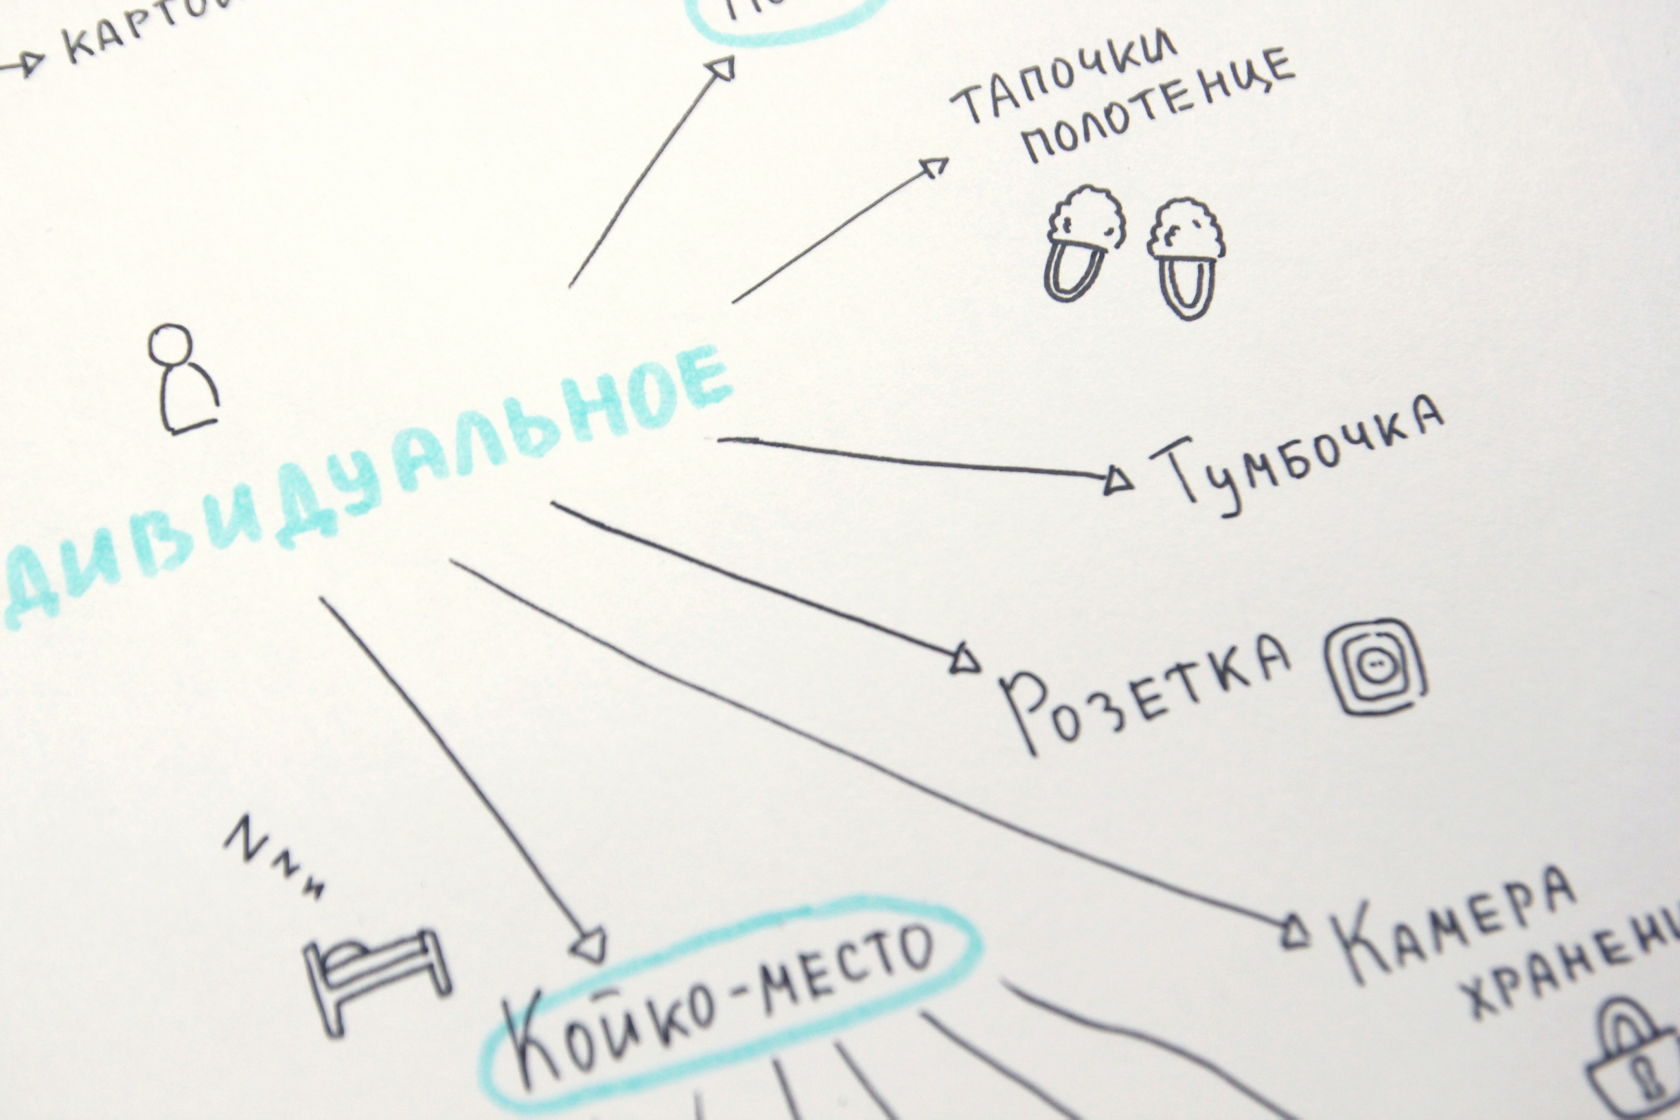 ТАПОЧКИ
ПОЛОТЕНЦЕ
ДИВИДУАЛЬНОЕ
ТУМБОЧКА
РОЗЕТКА
Zzz
КАМЕРА
ХРАНЕНИ
КОЙКО-МЕСТО